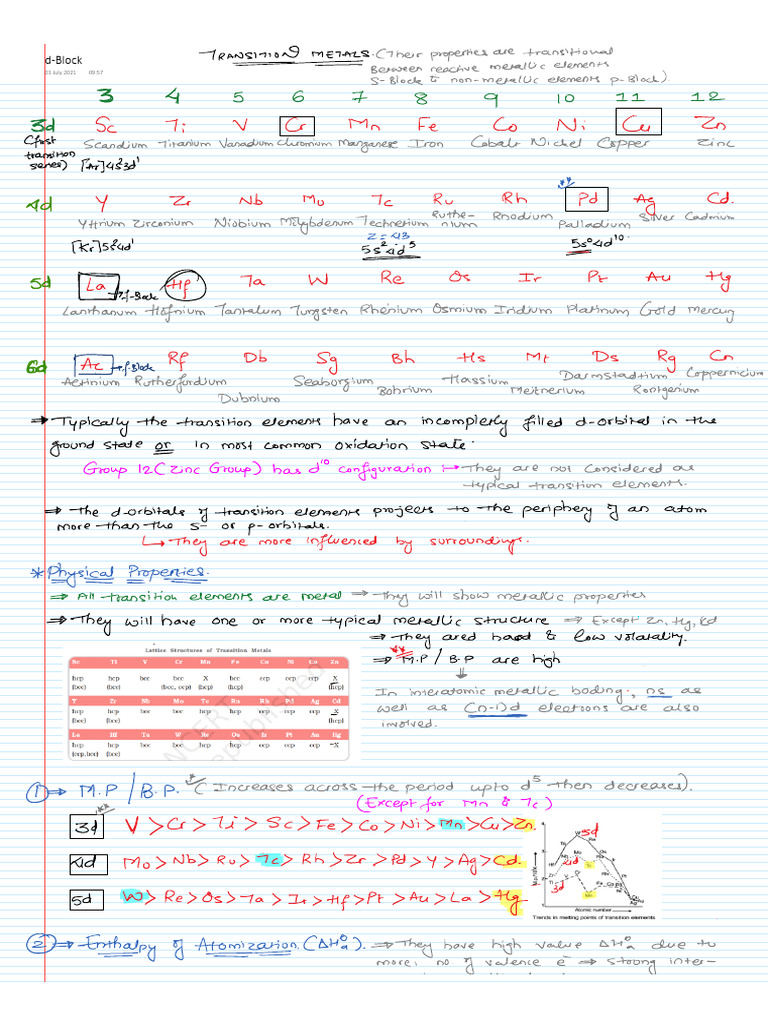 d-Block
03 July 2021 09:57
TRANSITION METALS. (Their properties are transitional
Between reactive metallic elements
S-Block & non-metallic elements p-Block).
3 4 5 6 7 8 9 10 11 12
3d Sc Ti V Cr Mn Fe Co Ni Cu Zn
(first transition series) Scandium Titanium Vanadium Chromium Manganese Iron Cobalt Nickel Copper Zinc
[Ar]4s²3d¹
4d Y Zr Nb Mo Tc Ru Rh Pd Ag Cd.
Yttrium Zirconium Niobium Molybdenum Technetium Ruthenium Rhodium Palladium Silver Cadmium
Z=43
[Kr]5s²4d¹ 5s²4d⁵ 5s⁰4d¹⁰
5d La Hf Ta W Re Os Ir Pt Au Hg
→f-Block
Lanthanum Hafnium Tantalum Tungsten Rhenium Osmium Iridium Platinum Gold Mercury
6d Ac →f-Block Rf Db Sg Bh Hs Mt Ds Rg Cn
Actinium Rutherfordium Dubnium Seaborgium Bohrium Hassium Meitnerium Darmstadtium Rontgenium Coppernicium
⇒ Typically the transition elements have an incompletly filled d-orbital in the
ground state or in most common oxidation state.
Group 12 (Zinc Group) has d¹⁰ configuration :→ They are not considered as
typical transition elements.
⇒ The d-orbitals of transition elements projects to the periphery of an atom
more than the S- or p-orbitals.
↳ They are more influenced by surroundings.
* Physical Properties.
⇒ All transition elements are metal ⇒ They will show metallic properties
⇒ They will have one or more typical metallic structure ⇒ Except Zn, Hg, Cd
⇒ They ared hard & low volatality.
⇒ M.P / B.P are high
In interatomic metallic boding, ns as
well as (n-1)d electrons are also
involved.
Lattice Structures of Transition Metals
Sc Ti V Cr Mn Fe Co Ni Cu Zn
hcp hcp bcc bcc X bcc ccp ccp ccp X
(bcc) (bcc) (bcc, ccp) (hcp) (hcp) (hcp) (hcp)
Y Zr Nb Mo Tc Ru Rh Pd Ag Cd
hcp hcp bcc bcc hcp hcp ccp ccp ccp X
(bcc) (bcc) (hcp)
La Hf Ta W Re Os Ir Pt Au Hg
hcp hcp bcc bcc hcp hcp ccp ccp ccp X
(ccp,bcc) (bcc)
1 ⇒ M.P / B.P. (Increases across the period upto d⁵ then decreases).
(Except for Mn & Tc)
3d V > Cr > Ti > Sc > Fe > Co > Ni > Mn > Cu > Zn.
4d Mo > Nb > Ru > Tc > Rh > Zr > Pd > Y > Ag > Cd.
5d W > Re > Os > Ta > Ir > Hf > Pt > Au > La > Hg
Atomic number
Trends in melting points of transition elements
2 ⇒ Enthalpy of Atomization. (ΔHₐ⁰). ⇒ They have high value ΔHₐ⁰ due to
more no of valence e⁻ ⇒ strong inter-